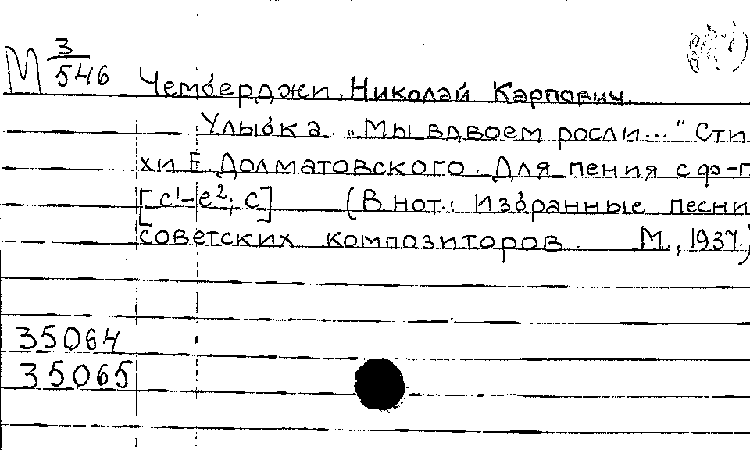 М 3/546 Чемберджи, Николай Карпович
Улыбка. „Мы вдвоем росли..." Сти
хи Е. Долматовского. Для пения с ф-п
[c¹-e²; c] (В нот.: Избранные песни
советских композиторов. М., 1937.)
35064
35065